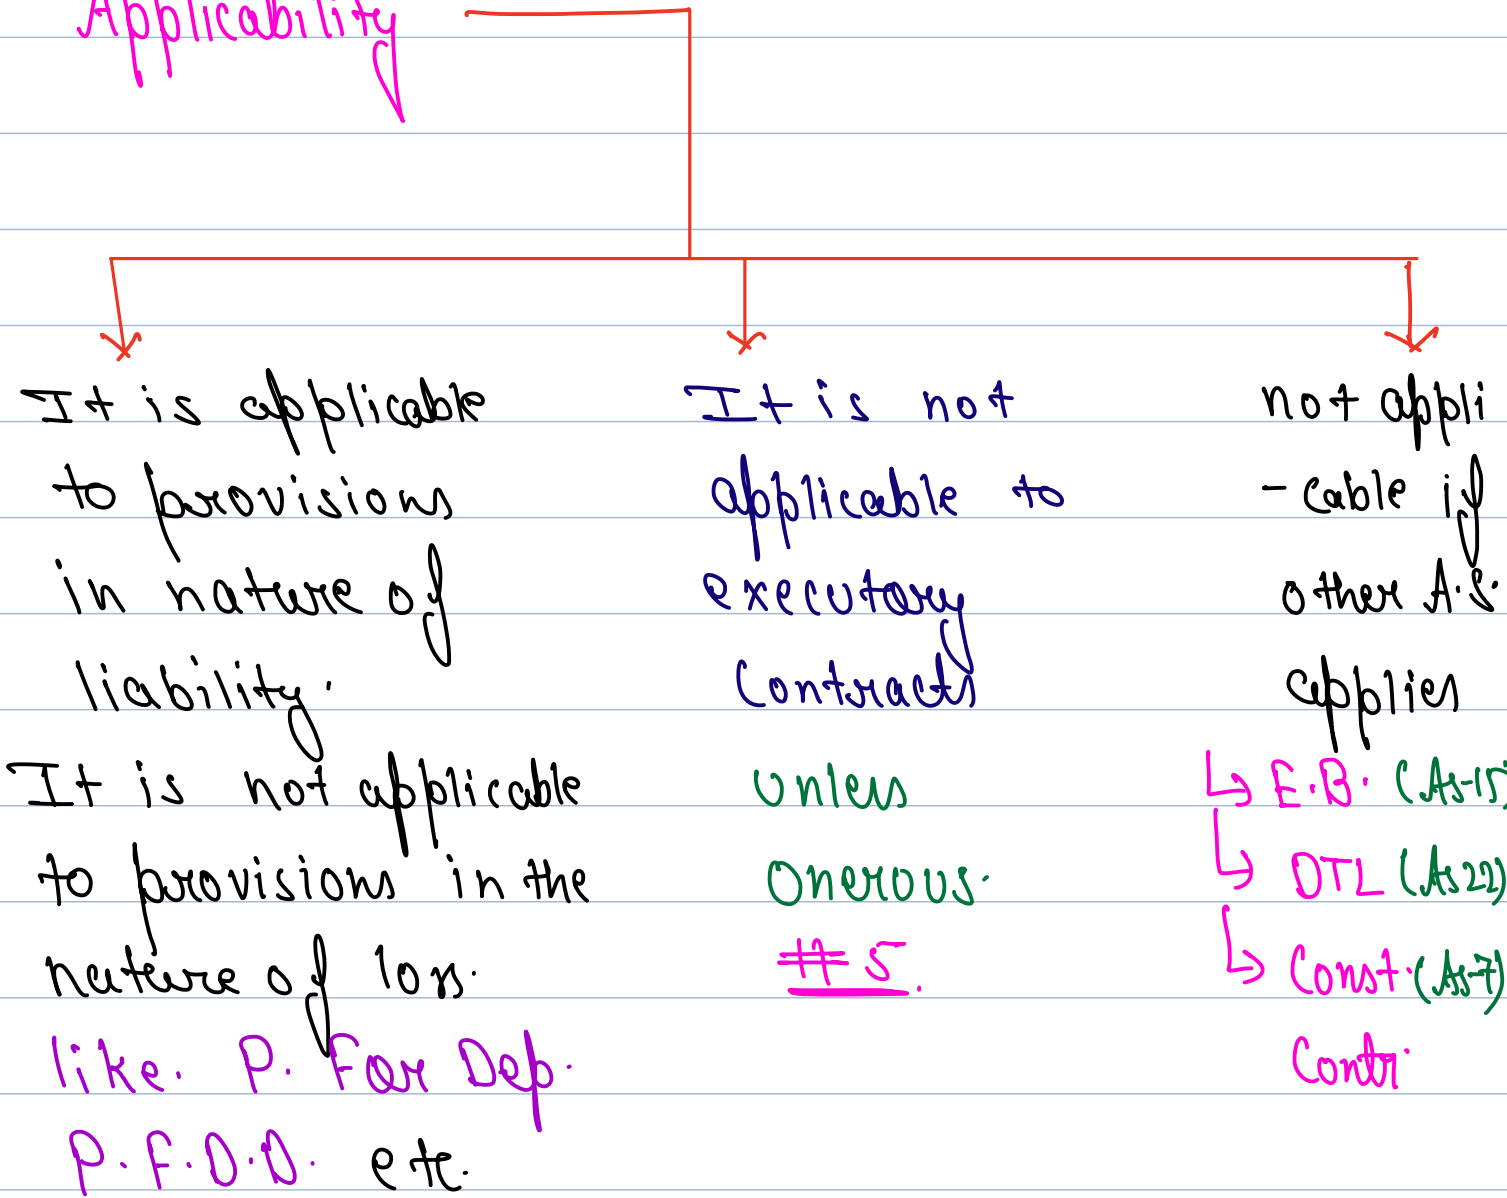 Applicability
It is applicable
to provisions
in nature of
liability.
It is not applicable
to provisions in the
nature of loss.
like. P. For Dep.
P.F.D.D. etc.
It is not
applicable to
executory
Contracts
unless
Onerous.
#5.
not appli
-cable if
other A.S.
applies
E.B. (As-15)
DTL (As22)
Const. (As-7)
Contr